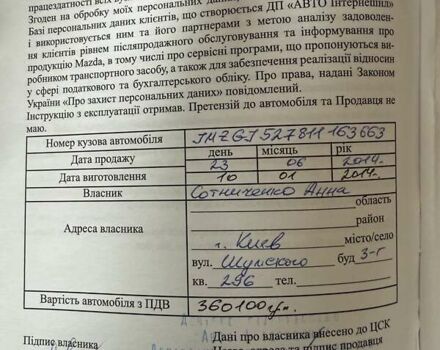 Згоден на обробку моїх персональних даних
Базі персональних даних клієнтів, що створюється ДП «АВТО Інтернешнл»
і використовується ним та його партнерами з метою аналізу задоволен-
ня клієнтів рівнем післяпродажного обслуговування та інформування про
продукцію Mazda, в тому числі про сервісні програми, що пропонуються ви-
робником транспортного засобу, а також для забезпечення реалізації відносин
у сфері податкового та бухгалтерського обліку. Про права, надані Законом
України «Про захист персональних даних» повідомлений.
Інструкцію з експлуатації отримав. Претензій до автомобіля та Продавця не
маю.
Номер кузова автомобіля JMZGJ527811163663
Дата продажу день місяць рік
23 06 2014
Дата виготовлення 10 01 2014
Власник Сотниченко Анна
область
район
Адреса власника г. Киев місто/село
вул. Шумского буд 3-г
кв. 296 тел.
Вартість автомобіля з ПДВ 360100грн.
Підпис власника Дані про власника внесено до ЦСК